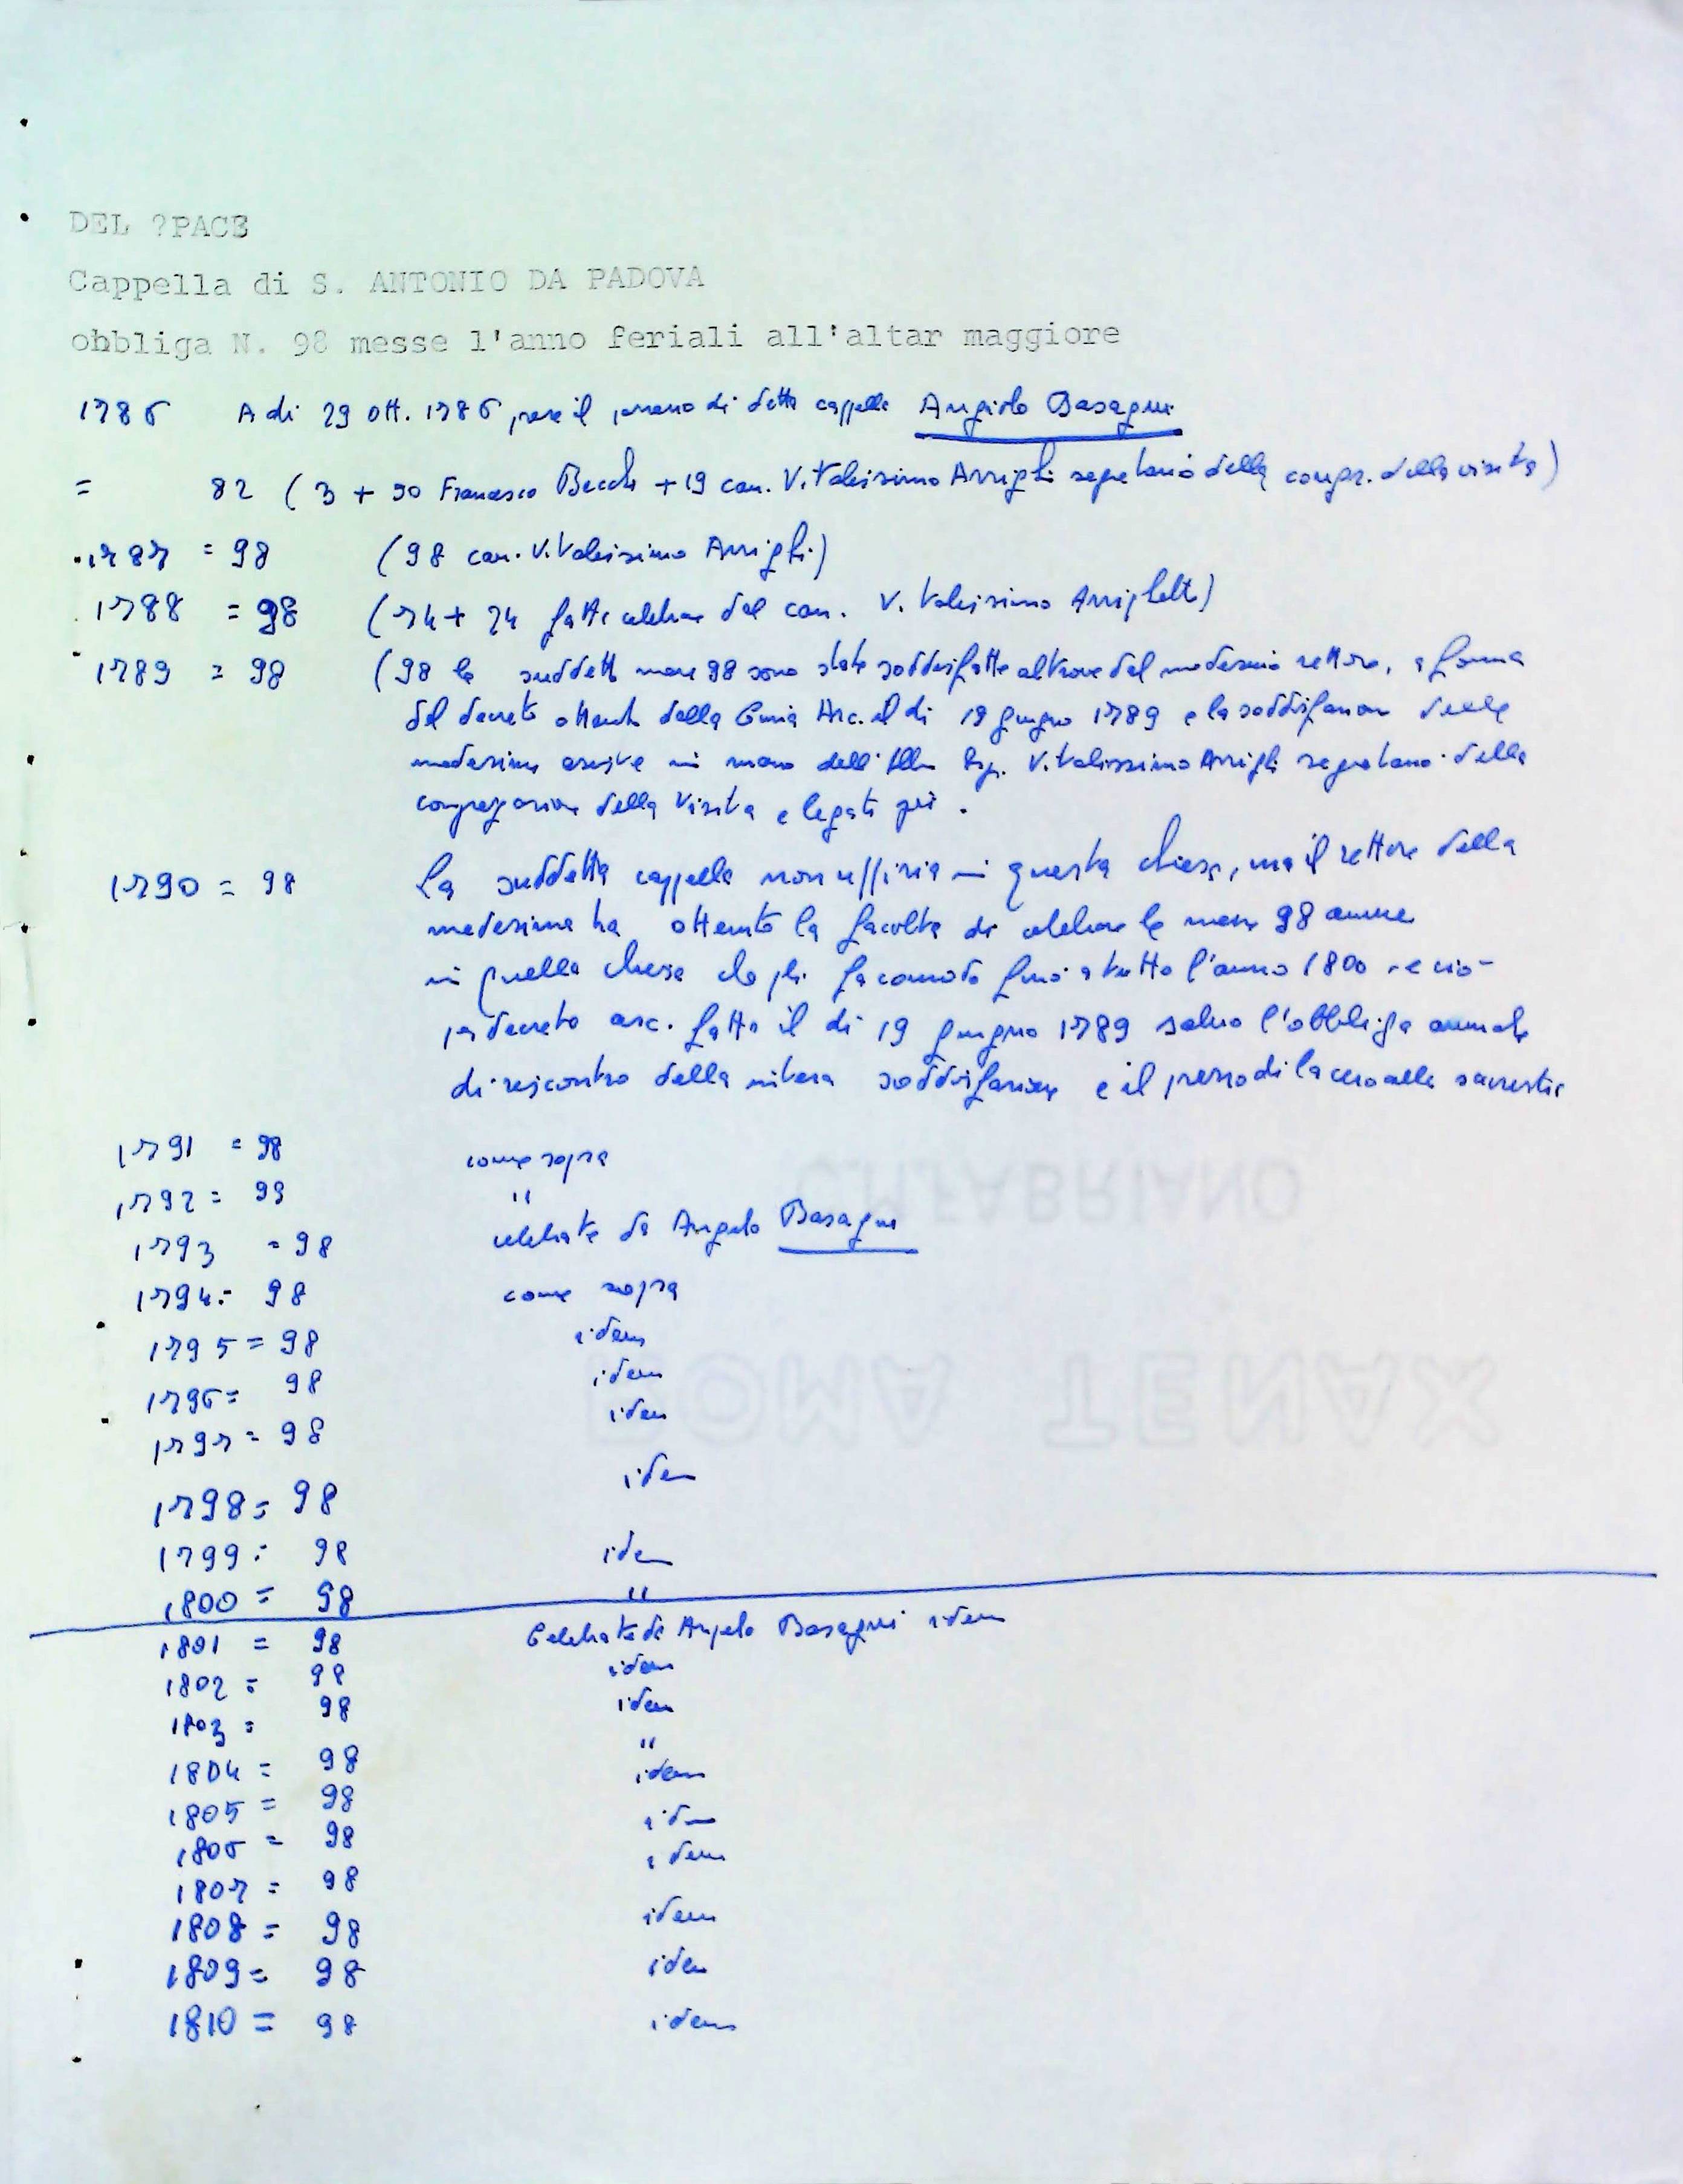 DEL ?PACE
Cappella di S. ANTONIO DA PADOVA
obbliga N. 98 messe l'anno feriali all'altar maggiore
1786 A di 29 Ott. 1786 prese il possesso di detta cappella Angiolo Basagni
= 82 (3 + 50 Francesco Becchi + 19 can. Vitalissimo Arrighi segretario della congr. della visita)
1787 = 98 (98 can. Vitalissimo Arrighi)
1788 = 98 (74 + 24 fatte celebrare dal can. Vitalissimo Arrighetti)
1789 = 98 (98 le suddette messe 98 sono state soddisfatte altrove dal medesimo rettore, a forma
del decreto ottenuto dalla Curia Arc. il di 19 giugno 1789 e la soddisfazione delle
medesime esiste in mano dell' Sig. Vitalissimo Arrighi segretario della
congregazione della Visita e legati pii.
1790 = 98 La suddetta cappella non uffizia in questa chiesa, ma il rettore della
medesima ha ottenuto la facoltà di celebrare le messe 98 annue
in quella chiesa che gli fa comodo fino a tutto l'anno 1800 e ciò
per decreto arc. fatto il di 19 giugno 1789 salvo l'obbligo annuale
di riscontro della intera soddisfazione e il prezzo di la cera alla sacrestia
1791 = 98 come sopra
1792 = 98 "
1793 = 98 celebrate da Angelo Basagni
1794 = 98 come sopra
1795 = 98 idem
1796 = 98 idem
1797 = 98 idem
1798 = 98 idem
1799 = 98 idem
1800 = 98 "
1801 = 98 Celebrate da Angelo Basagni idem
1802 = 98 idem
1803 = 98 idem
"
1804 = 98 idem
1805 = 98 idem
1806 = 98 idem
1807 = 98
1808 = 98 idem
1809 = 98 idem
1810 = 98 idem
C.M.FABRIANO
TENAX